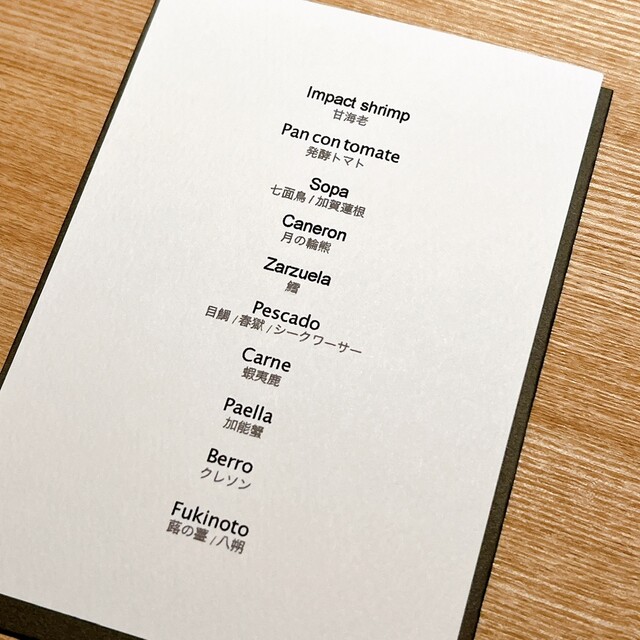 Impact shrimp
甘海老
Pan con tomate
発酵トマト
Sopa
七面鳥 / 加賀蓮根
Caneron
月の輪熊
Zarzuela
鱈
Pescado
目鯛 / 春獄 / シークワーサー
Carne
蝦夷鹿
Paella
加能蟹
Berro
クレソン
Fukinoto
蕗の薹 / 八朔